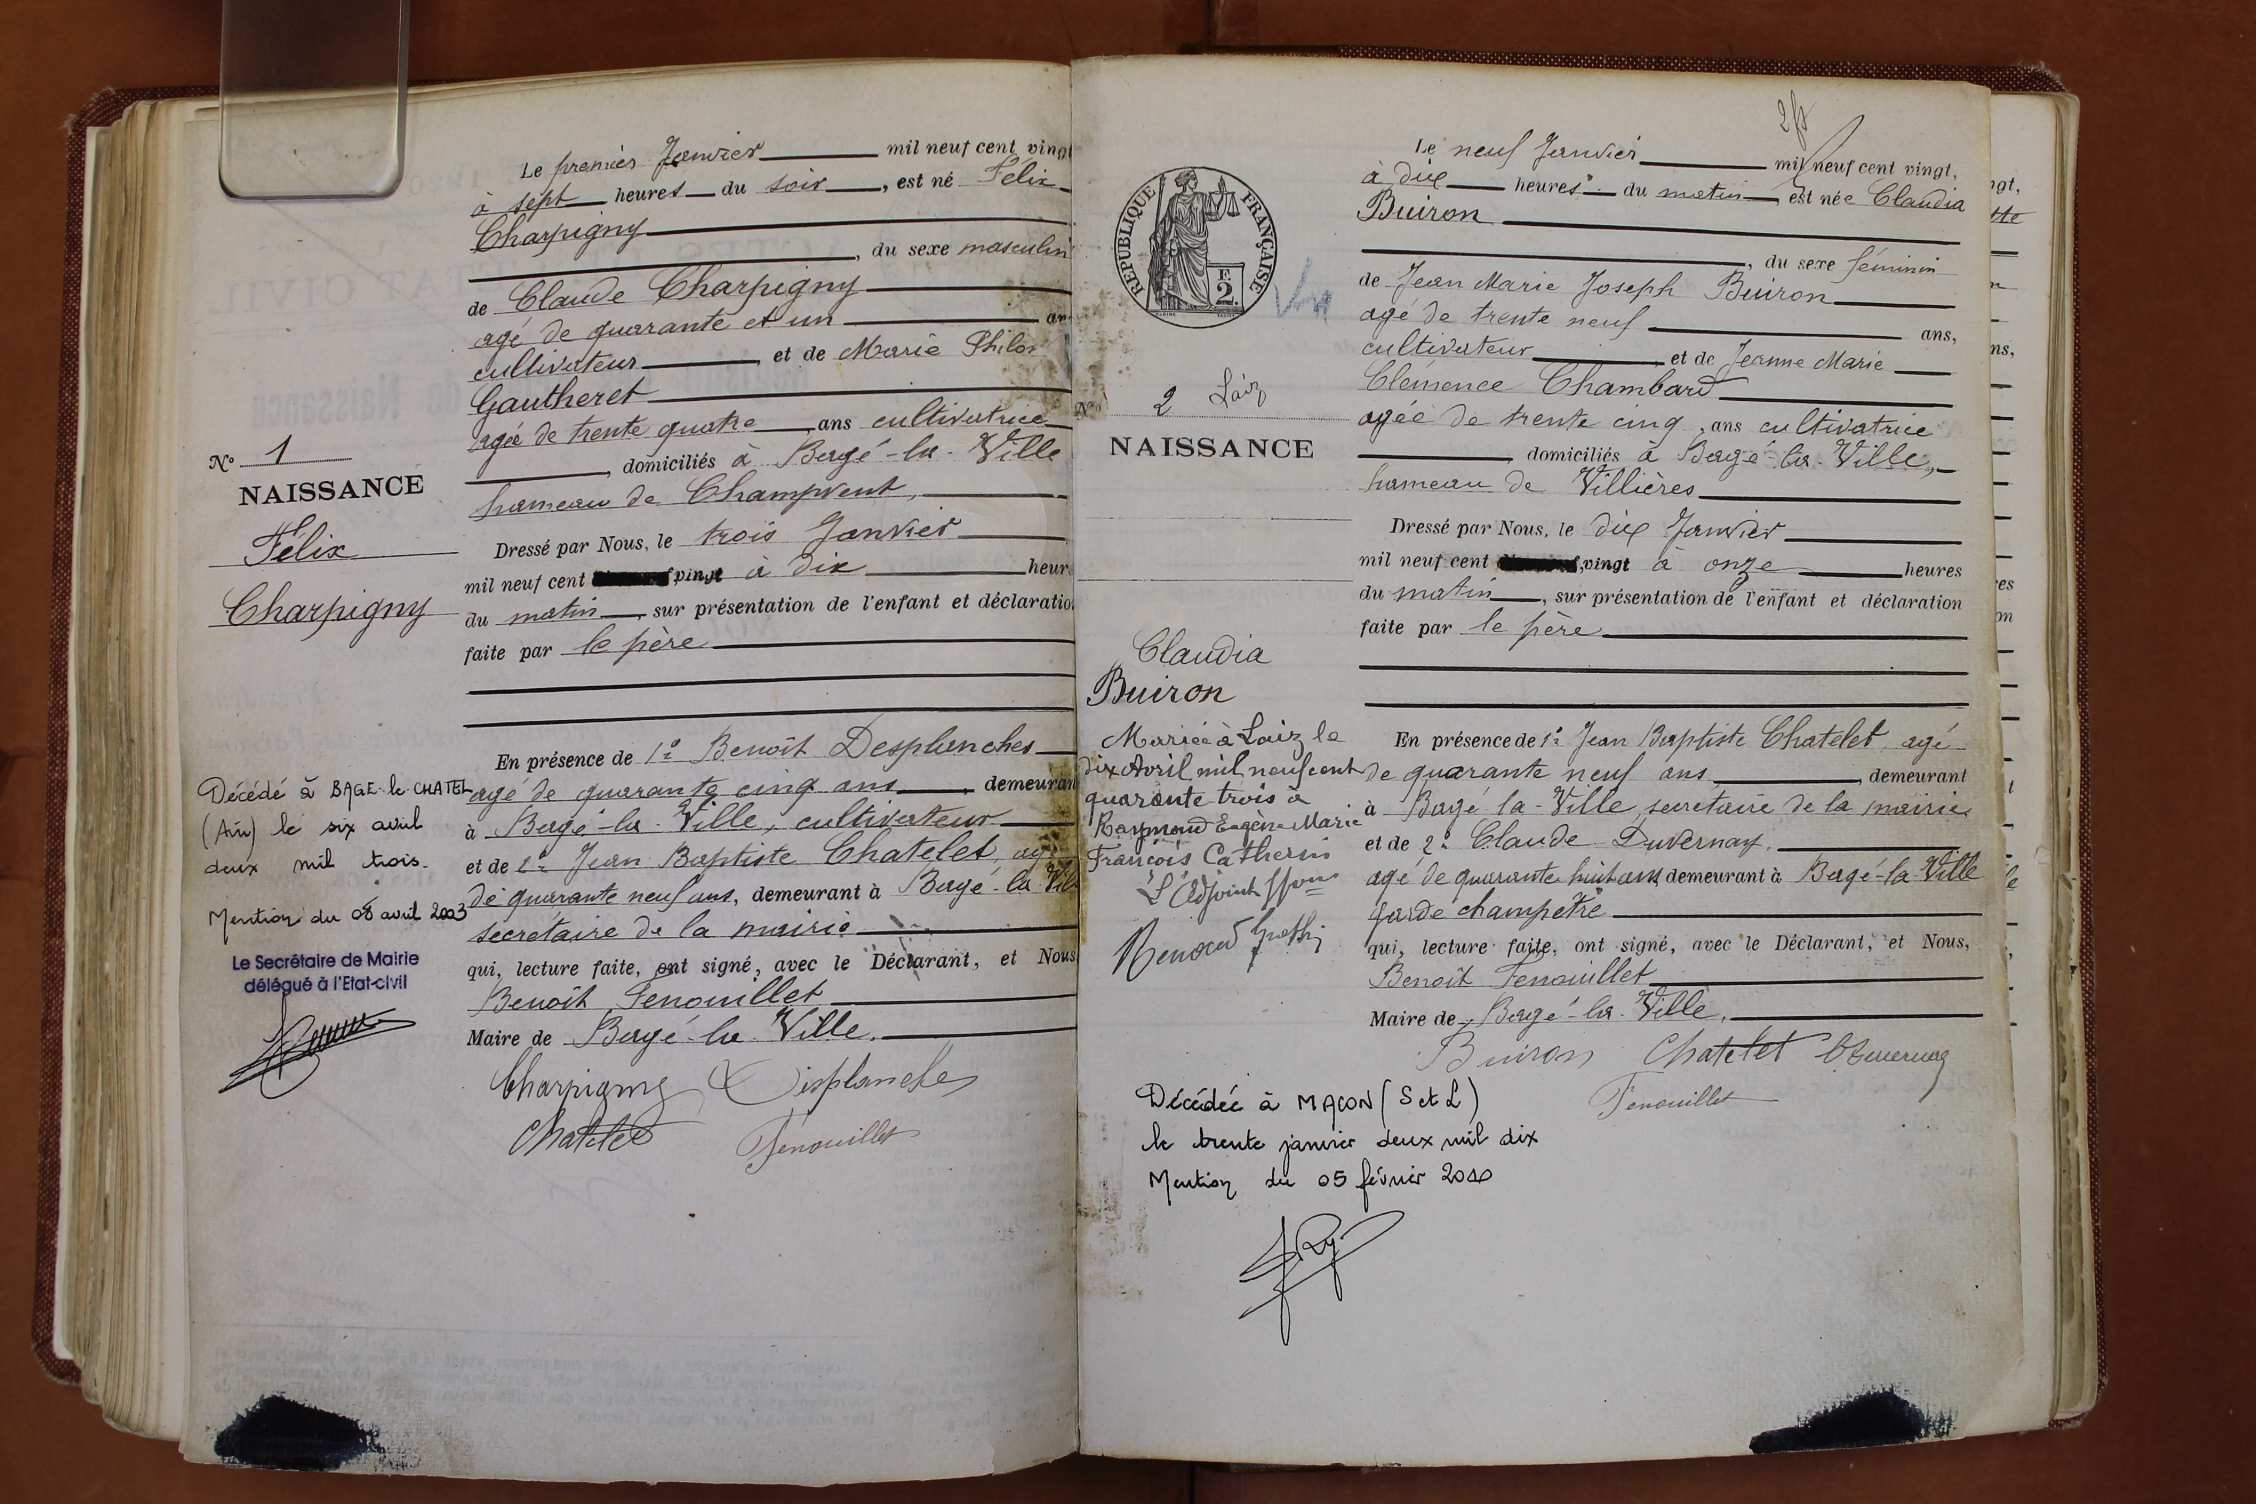 Le premier Janvier mil neuf cent vingt
à sept heures du soir, est né Félix
Charpigny
, du sexe masculin
de Claude Charpigny
agé de quarante et un an
cultivateur et de Marie Philo
Gautheret
agée de trente quatre, ans cultivatrice
, domiciliés à Bagé-la-Ville
hameau de Champvent,
Dressé par Nous, le trois Janvier
mil neuf cent vingt à dix heur
du matin, sur présentation de l'enfant et déclaratio
faite par le père
En présence de 1º Benoît Desplanches
agé de quarante cinq ans, demeuran
à Bagé-la-Ville, cultivateur
et de 2º Jean Baptiste Chatelet, agé
de quarante neuf ans, demeurant à Bagé-la-Vill
secrétaire de la mairie
qui, lecture faite, ont signé, avec le Déclarant, et Nous
Benoît Fenouillet
Maire de Bagé-la-Ville.
Charpigny Desplanches
Chatelet Fenouillet
Nº 1
NAISSANCE
Félix
Charpigny
Décédé à BAGE-le-CHATEL
(Ain) le six avril
deux mil trois.
Mention du 08 avril 2003
Le Secrétaire de Mairie
délégué à l'Etat-civil
2
Le neuf Janvier mil neuf cent vingt,
à dix heures du matin, est née Claudia
Buiron
, du sexe féminin
de Jean Marie Joseph Buiron
agé de trente neuf ans,
cultivateur et de Jeanne Marie
Clémence Chambard
agée de trente cinq, ans cultivatrice
, domiciliés à Bagé-la-Ville,
hameau de Villières
Dressé par Nous, le dix Janvier
mil neuf cent vingt à onze heures
du matin, sur présentation de l'enfant et déclaration
faite par le père
En présence de 1º Jean Baptiste Chatelet, agé
de quarante neuf ans, demeurant
à Bagé-la-Ville, secrétaire de la mairie
et de 2º Claude Duvernay,
agé de quarante huit ans, demeurant à Bagé-la-Ville
garde champêtre
qui, lecture faite, ont signé, avec le Déclarant, et Nous,
Benoît Fenouillet
Maire de Bagé-la-Ville.
Buiron Chatelet C Duvernay
Fenouillet
REPUBLIQUE FRANÇAISE
E
2.
Nº 2 Laiz
NAISSANCE
Claudia
Buiron
Mariée à Laiz le
dix Avril mil neuf cent
quarante trois à
Raymond Eugène Marie
François Catherin
L'Adjoint
Décédée à MACON (S et L)
le trente janvier deux mil dix
Mention du 05 février 2010